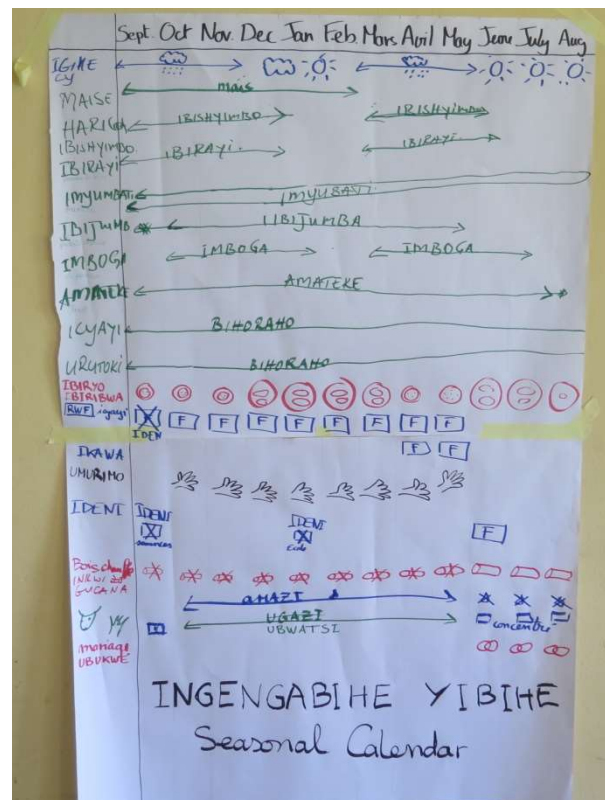 Sept. Oct Nov. Dec Jan Feb Mars Avril May Jeune July Aug
IGIHE
CY
MAISE mais
HARICOA IBISHYIMBO IBISHYIMBO
IBISHYIMBO.
IBIRAYI IBIRAYI. IBIRAYI
IMYUMBATI IMYUMBATI
IBIJUMB IBIJUMBA
IMBOGA IMBOGA IMBOGA
AMATEKE AMATEKE
ICYAYI BIHORAHO
URUTOKI BIHORAHO
IBIRYO
IBIRIBWA
RWF icyayi F F F F F F F F
IDEN
IKAWA F F
UMURIMO
IDENI IDENI IDENI F
semences ecole
Bois chauff
INKWI ZO
GUCANA
AMAZI
UGAZI concentré
UBWATSI
mariage
UBUKWE
INGENGABIHE YIBIHE
Seasonal Calendar